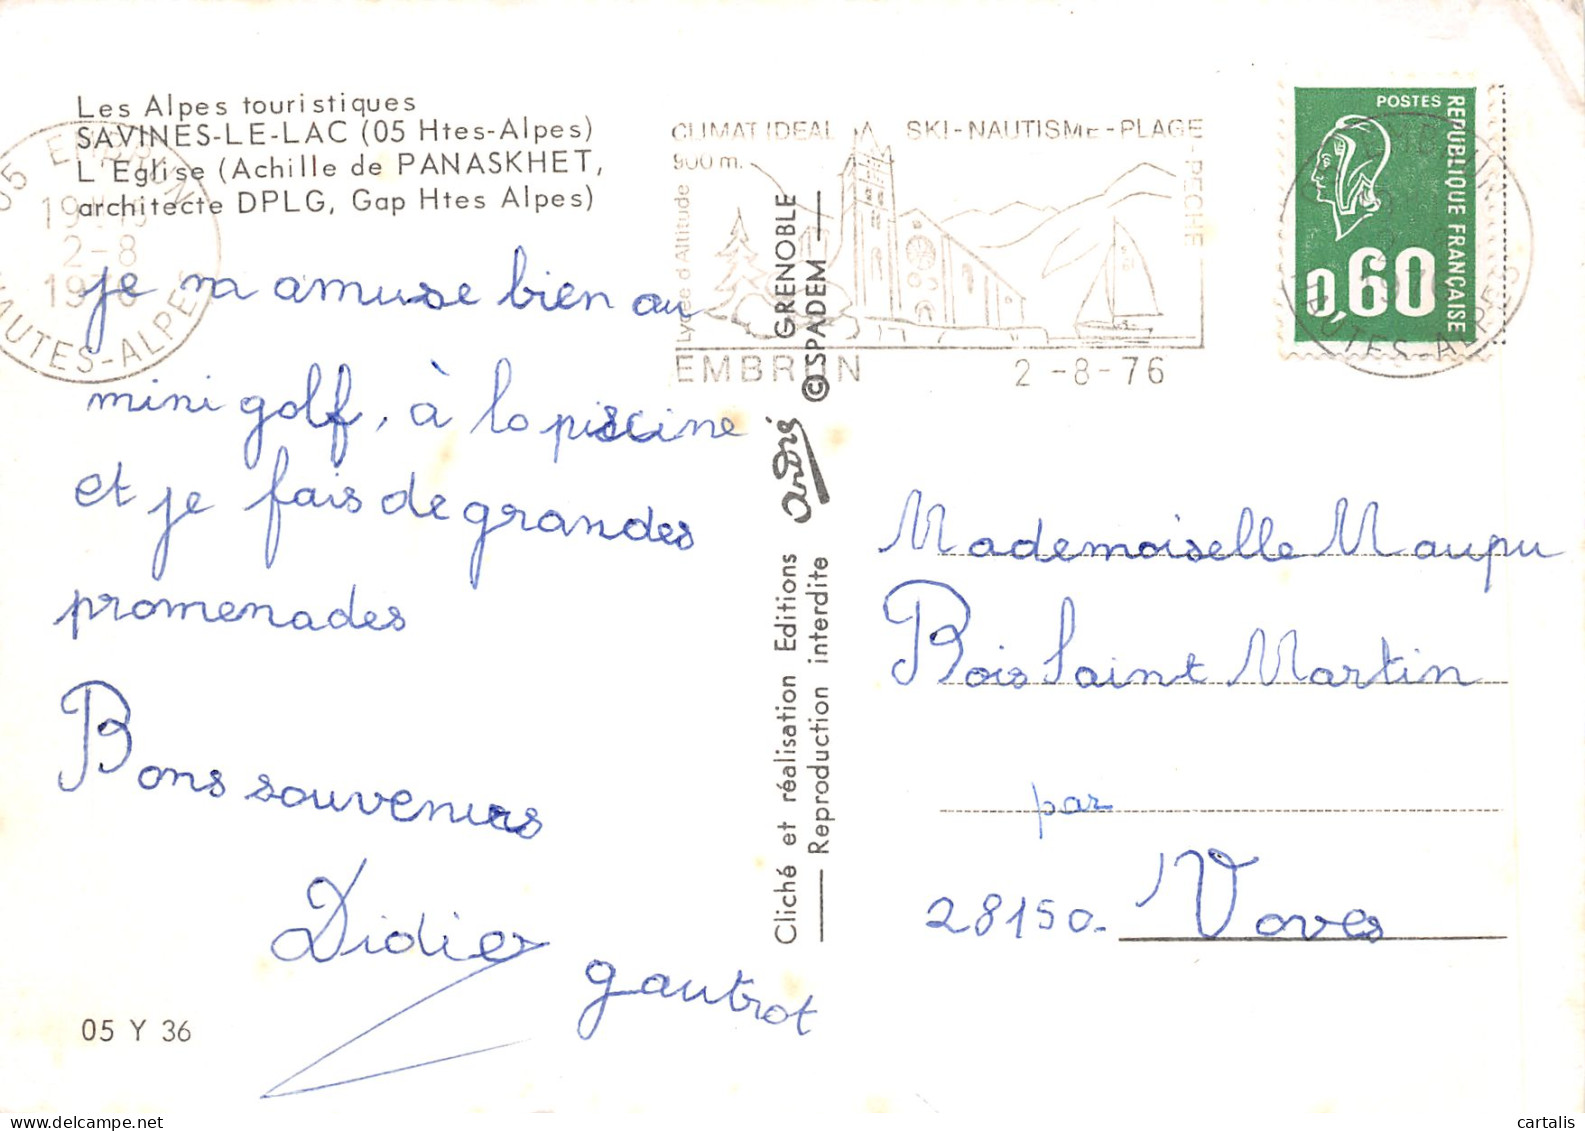 Les Alpes touristiques
SAVINES-LE-LAC (05 Htes-Alpes)
L'Eglise (Achille de PANASKHET,
architecte DPLG, Gap Htes Alpes)
05 EMBRUN
2-8
1976
HAUTES-ALPES
CLIMAT IDEAL SKI-NAUTISME-PLAGE
900 m.
-PECHE
Lycée d'Altitude
EMBRUN 2-8-76
POSTES
REPUBLIQUE FRANÇAISE
0,60
HAUTES-ALPES
je m amuse bien au
mini golf, à la piscine
et je fais de grandes
promenades
Bons souvenirs
Didier
gautrot
05 Y 36
Cliché et réalisation Editions André GRENOBLE
Reproduction interdite ©SPADEM
Mademoiselle Maupu
Bois Saint Martin
par
28150- Voves
cartalis